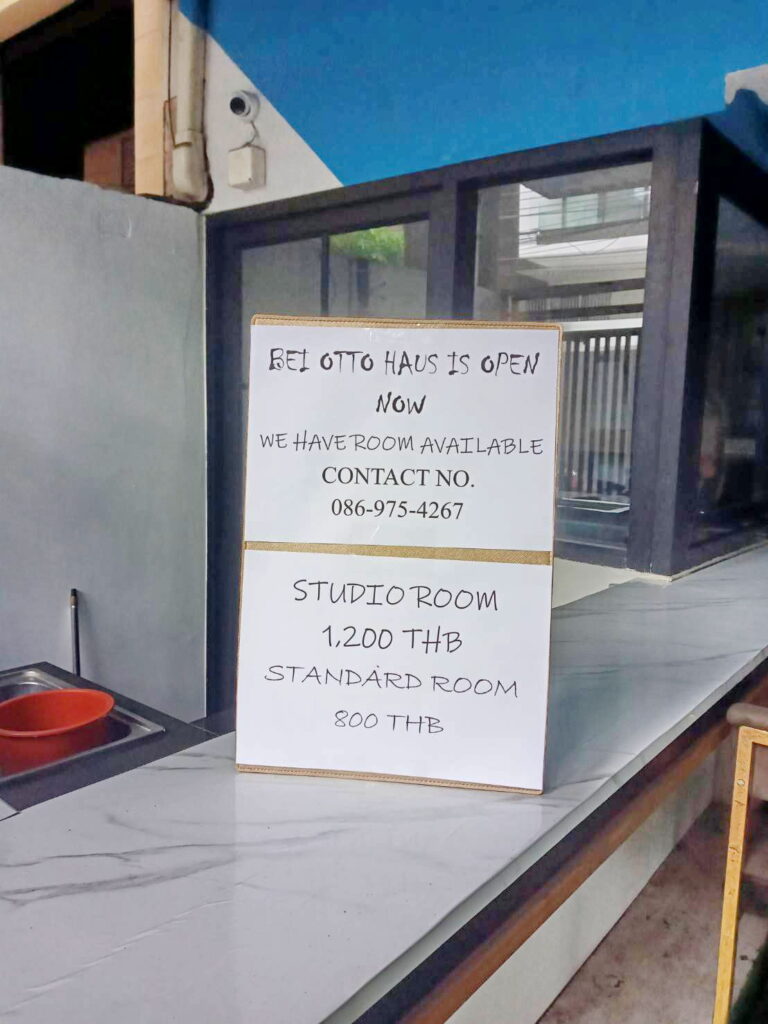 BEI OTTO HAUS IS OPEN
NOW
WE HAVE ROOM AVAILABLE
CONTACT NO.
086-975-4267
STUDIO ROOM
1,200 THB
STANDARD ROOM
800 THB